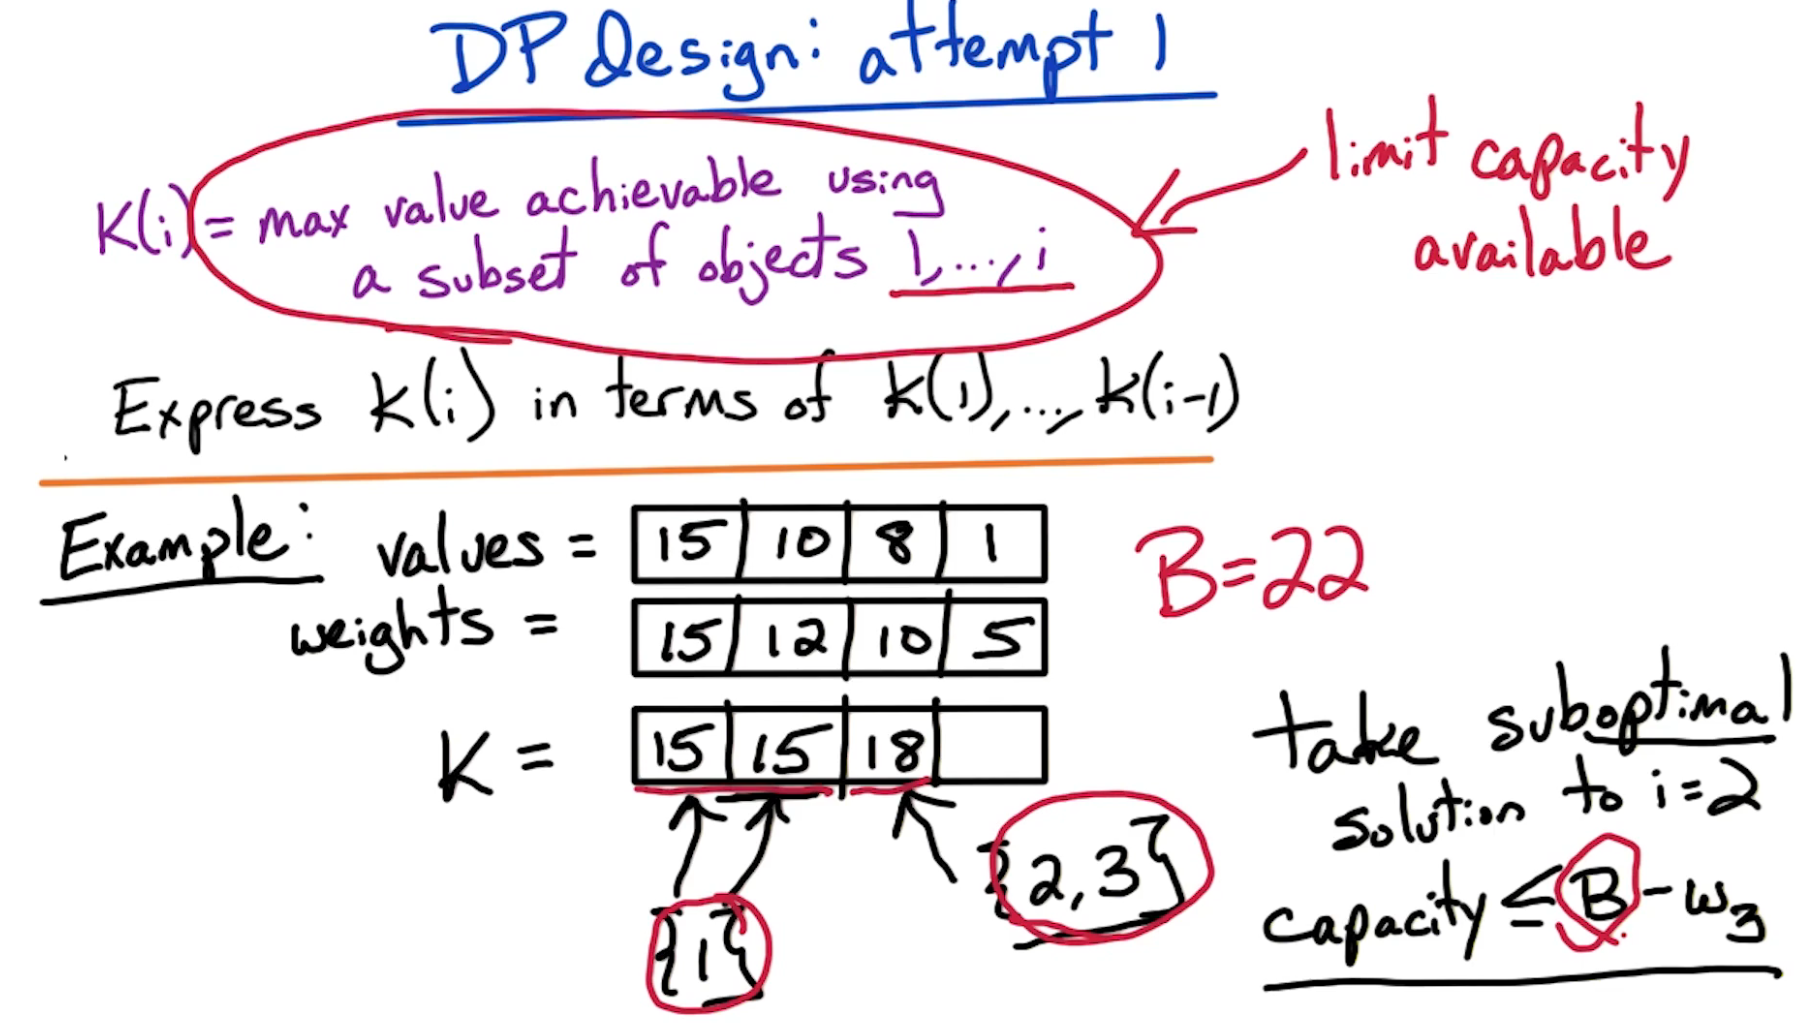 DP design: attempt 1
K(i) = max value achievable using
a subset of objects 1,...,i
limit capacity
available
Express K(i) in terms of K(1),...,K(i-1)
Example: values = 15 10 8 1
B=22
weights = 15 12 10 5
K = 15 15 18
{1}
{2,3}
take suboptimal
solution to i=2
capacity ≤ B-w₃